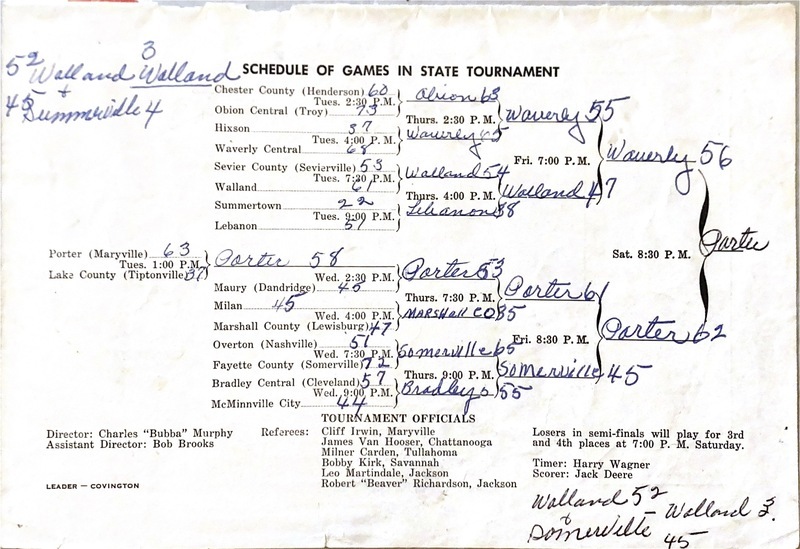 3
52 Walland Walland
+
45 Summerville 4
SCHEDULE OF GAMES IN STATE TOURNAMENT
Chester County (Henderson) 60
Tues. 2:30 P.M.
Obion Central (Troy) 73
Obion 63
Thurs. 2:30 P. M.
Waverly 65
Hixson 37
Tues. 4:00 P.M.
Waverly Central 68
Waverly 55
Fri. 7:00 P.M.
Walland 47
Sevier County (Sevierville) 53
Tues. 7:30 P.M.
Walland 61
Walland 54
Thurs. 4:00 P.M.
Lebanon 38
Summertown 22
Tues. 9:00 P.M.
Lebanon 57
Waverly 56
Sat. 8:30 P.M.
Porter
Porter (Maryville) 63
Tues. 1:00 P.M.
Lake County (Tiptonville) 37
Porter 58
Wed. 2:30 P.M.
Maury (Dandridge) 45
Porter 53
Thurs. 7:30 P. M.
MARSHALL CO 35
Milan 45
Wed. 4:00 P.M.
Marshall County (Lewisburg) 47
Porter 61
Fri. 8:30 P.M.
Somerville 45
Porter 62
Overton (Nashville) 51
Wed. 7:30 P.M.
Fayette County (Somerville) 72
Somerville 65
Thurs. 9:00 P.M.
Bradley 55
Bradley Central (Cleveland) 57
Wed. 9:00 P.M.
McMinnville City 44
TOURNAMENT OFFICIALS
Director: Charles "Bubba" Murphy
Assistant Director: Bob Brooks
Referees: Cliff Irwin, Maryville
James Van Hooser, Chattanooga
Milner Carden, Tullahoma
Bobby Kirk, Savannah
Leo Martindale, Jackson
Robert "Beaver" Richardson, Jackson
Losers in semi-finals will play for 3rd
and 4th places at 7:00 P. M. Saturday.
Timer: Harry Wagner
Scorer: Jack Deere
LEADER — COVINGTON
Walland 52
+
Somerville 45
Walland 3